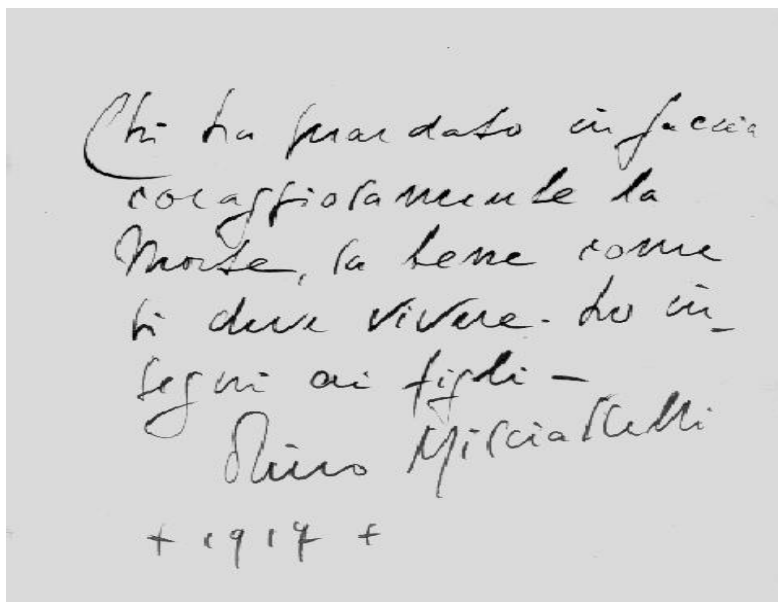 Chi ha guardato in faccia
coraggiosamente la
Morte, sa bene come
si deve vivere. Lo in-
segni ai figli -
Misciattelli
+ 1917 +